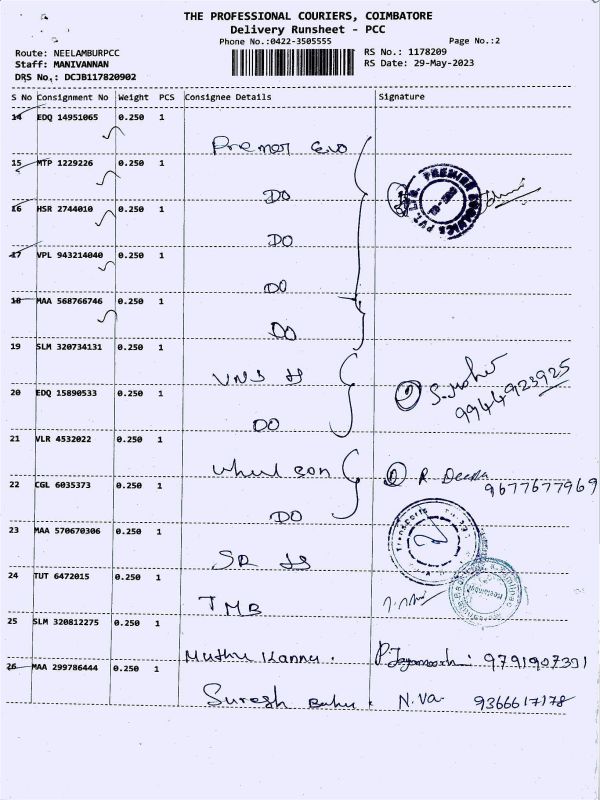 THE PROFESSIONAL COURIERS, COIMBATORE
Delivery Runsheet - PCC
Phone No.:0422-3505555 Page No.:2
Route: NEELAMBURPCC RS No.: 1178209
Staff: MANIVANNAN RS Date: 29-May-2023
DRS No.: DCJB117820902
S No Consignment No Weight PCS Consignee Details Signature
14 EDQ 14951065 0.250 1
Premer Evo
15 MTP 1229226 0.250 1
DO
16 HSR 2744010 0.250 1
DO
17 VPL 943214040 0.250 1
DO
18 MAA 568766746 0.250 1
DO
19 SLM 320734131 0.250 1
VNS
20 EDQ 15890533 0.250 1
DO 9944923925
21 VLR 4532022 0.250 1
R. Deepa
22 CGL 6035373 0.250 1 9677677969
DO
23 MAA 570670306 0.250 1
SR
24 TUT 6472015 0.250 1
TMB
25 SLM 320812275 0.250 1
Muthu Kannu. 9791907391
26 MAA 299786444 0.250 1
Suresh Babu N.Va 9366617178